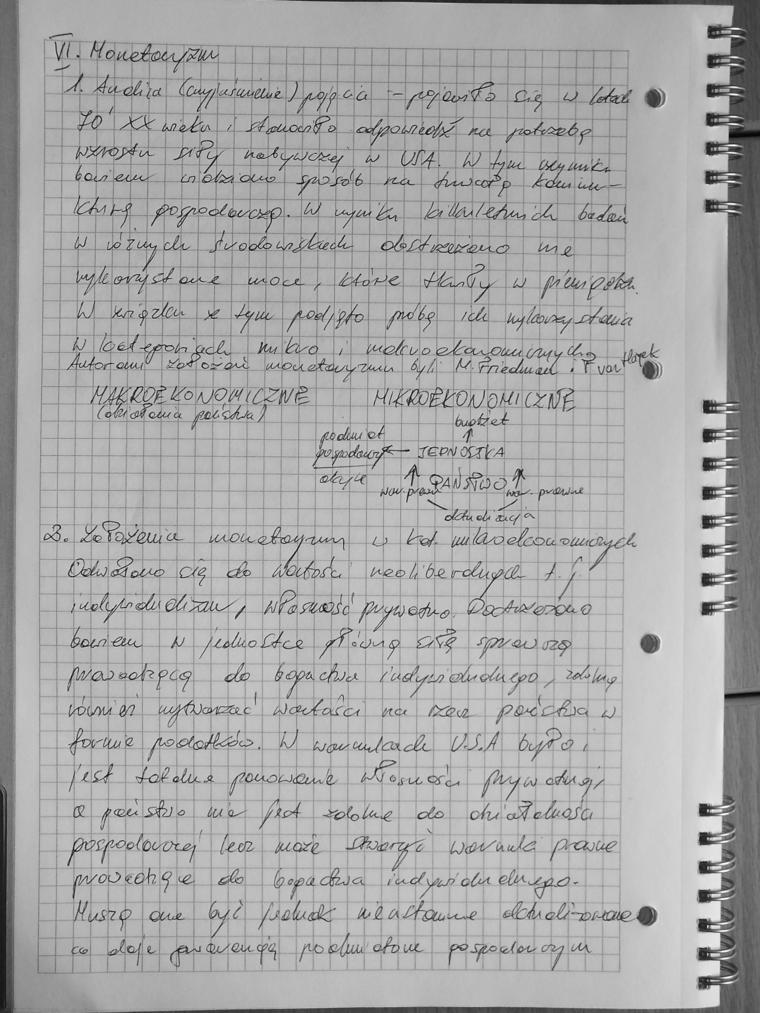 VI. Monetaryzm
1. Analiza (wyjaśnienie) pojęcia – pojawiło się w latach
70' XX wieku i stanowiło odpowiedź na potrzebę
wzrostu siły nabywczej w USA. W tym czynniku
bowiem widziano sposób na trwałą koniun-
kturę gospodarczą. W wyniku kilkuletnich badań
w różnych środowiskach dostrzeżono nie
wykorzystane moce, które tkwiły w pieniądzu.
W związku ze tym podjęto próbę ich wykorzystania
w kategoriach mikro i makroekonomicznych
Autorami założeń monetaryzmu byli M. Friedman i F von Hayek
MAKROEKONOMICZNE MIKROEKONOMICZNE
(działania państwa)
budżet
podmiot
gospodarczy ← JEDNOSTKA
PAŃSTWO
war. prawne war. prawne
aktualizacja
2. Założenia monetaryzmu w kat. mikroekonomicznych
Odwołano się do wartości neoliberalnych t. j.
indywidualizm, własność prywatna. Dostrzeżono
bowiem w jednostce główną siłę sprawczą
prowadzącą do bogactwa indywidualnego, zdolną
również wytwarzać wartości na rzecz państwa w
formie podatków. W warunkach U.S.A było i
jest totalne panowanie własności prywatnej,
a państwo nie jest zdolne do działalności
gospodarczej lecz może stworzyć warunki prawne
prowadzące do bogactwa indywidualnego.
Muszą one być jednak nieustannie aktualizowane
co daje gwarancję podmiotom gospodarczym